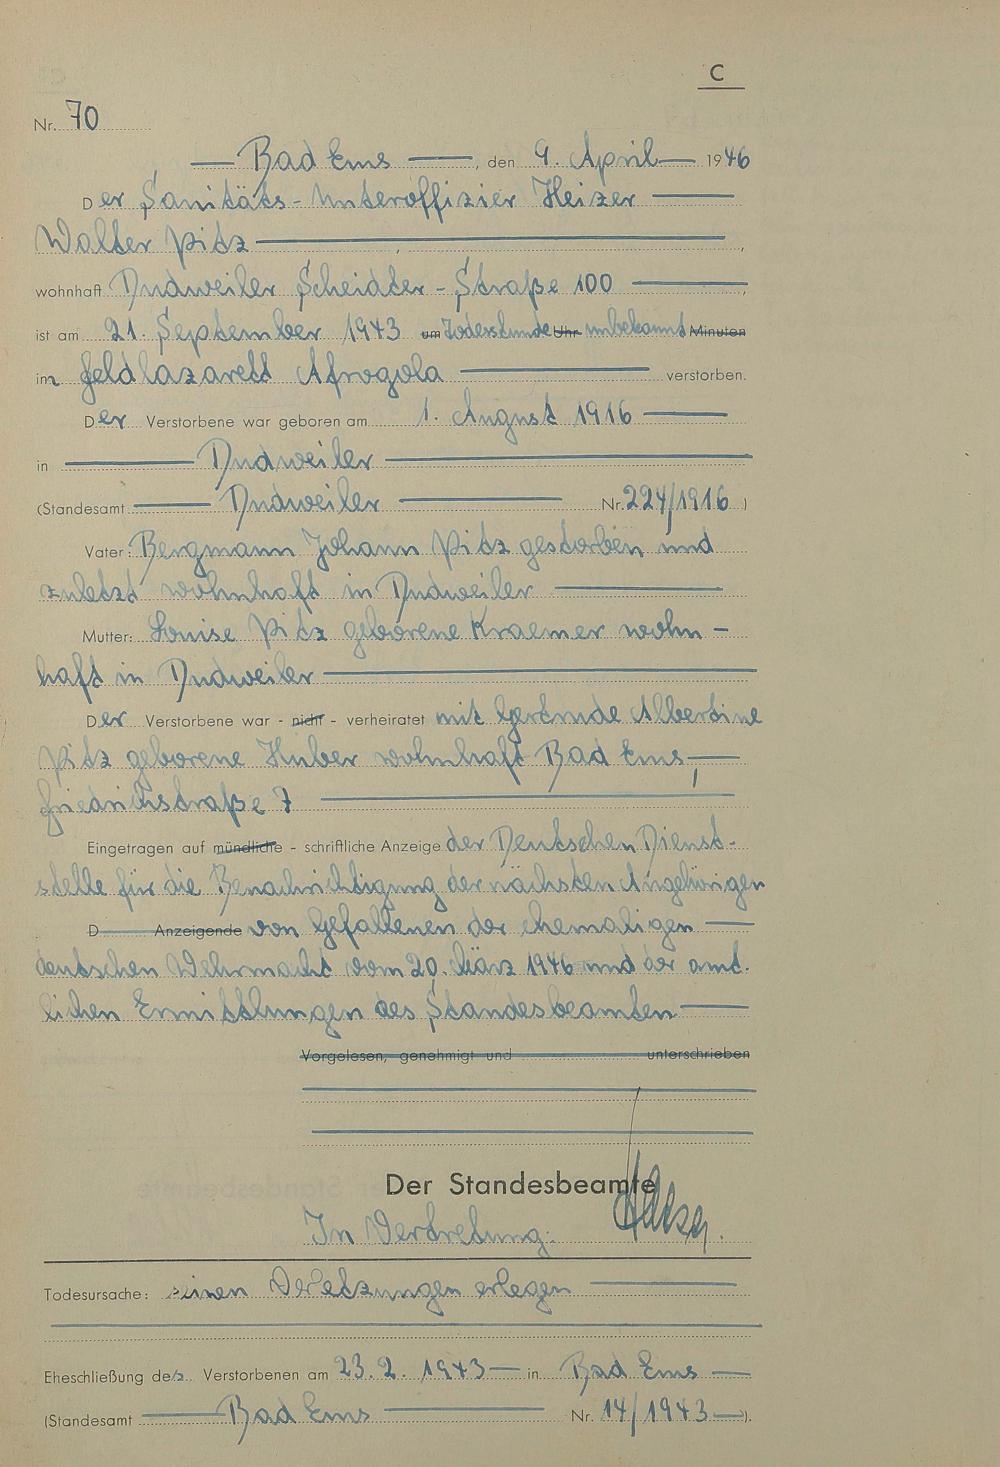 C
Nr. 70
Bad Ems, den 9. April 1946
Der Sanitäts-Unteroffizier Heizer
Walter Pitz,
wohnhaft Dudweiler Scheidter-Straße 100,
ist am 21. September 1943 um Todesstunde Uhr unbekannt Minuten
im Feldlazarett Afragola verstorben.
Der Verstorbene war geboren am 1. August 1916
in Dudweiler
(Standesamt Dudweiler Nr. 224/1916)
Vater: Bergmann Johann Pitz gestorben und
zuletzt wohnhaft in Dudweiler
Mutter: Louise Pitz geborene Kraemer wohn-
haft in Dudweiler
Der Verstorbene war - nicht - verheiratet mit Gertrude Albertine
Pitz geborene Huber wohnhaft Bad Ems,
Friedrichstraße 7
Eingetragen auf mündliche - schriftliche Anzeige der Deutschen Dienst-
stelle für die Benachrichtigung der nächsten Angehörigen
D Anzeigende von Gefallenen der ehemaligen
deutschen Wehrmacht vom 20. März 1946 und der amt-
lichen Ermittlungen des Standesbeamten
Vorgelesen, genehmigt und unterschrieben
Der Standesbeamte
In Vertretung:
Todesursache: seinen Verletzungen erlegen
Eheschließung des Verstorbenen am 23.2.1943 in Bad Ems
(Standesamt Bad Ems Nr. 14/1943).